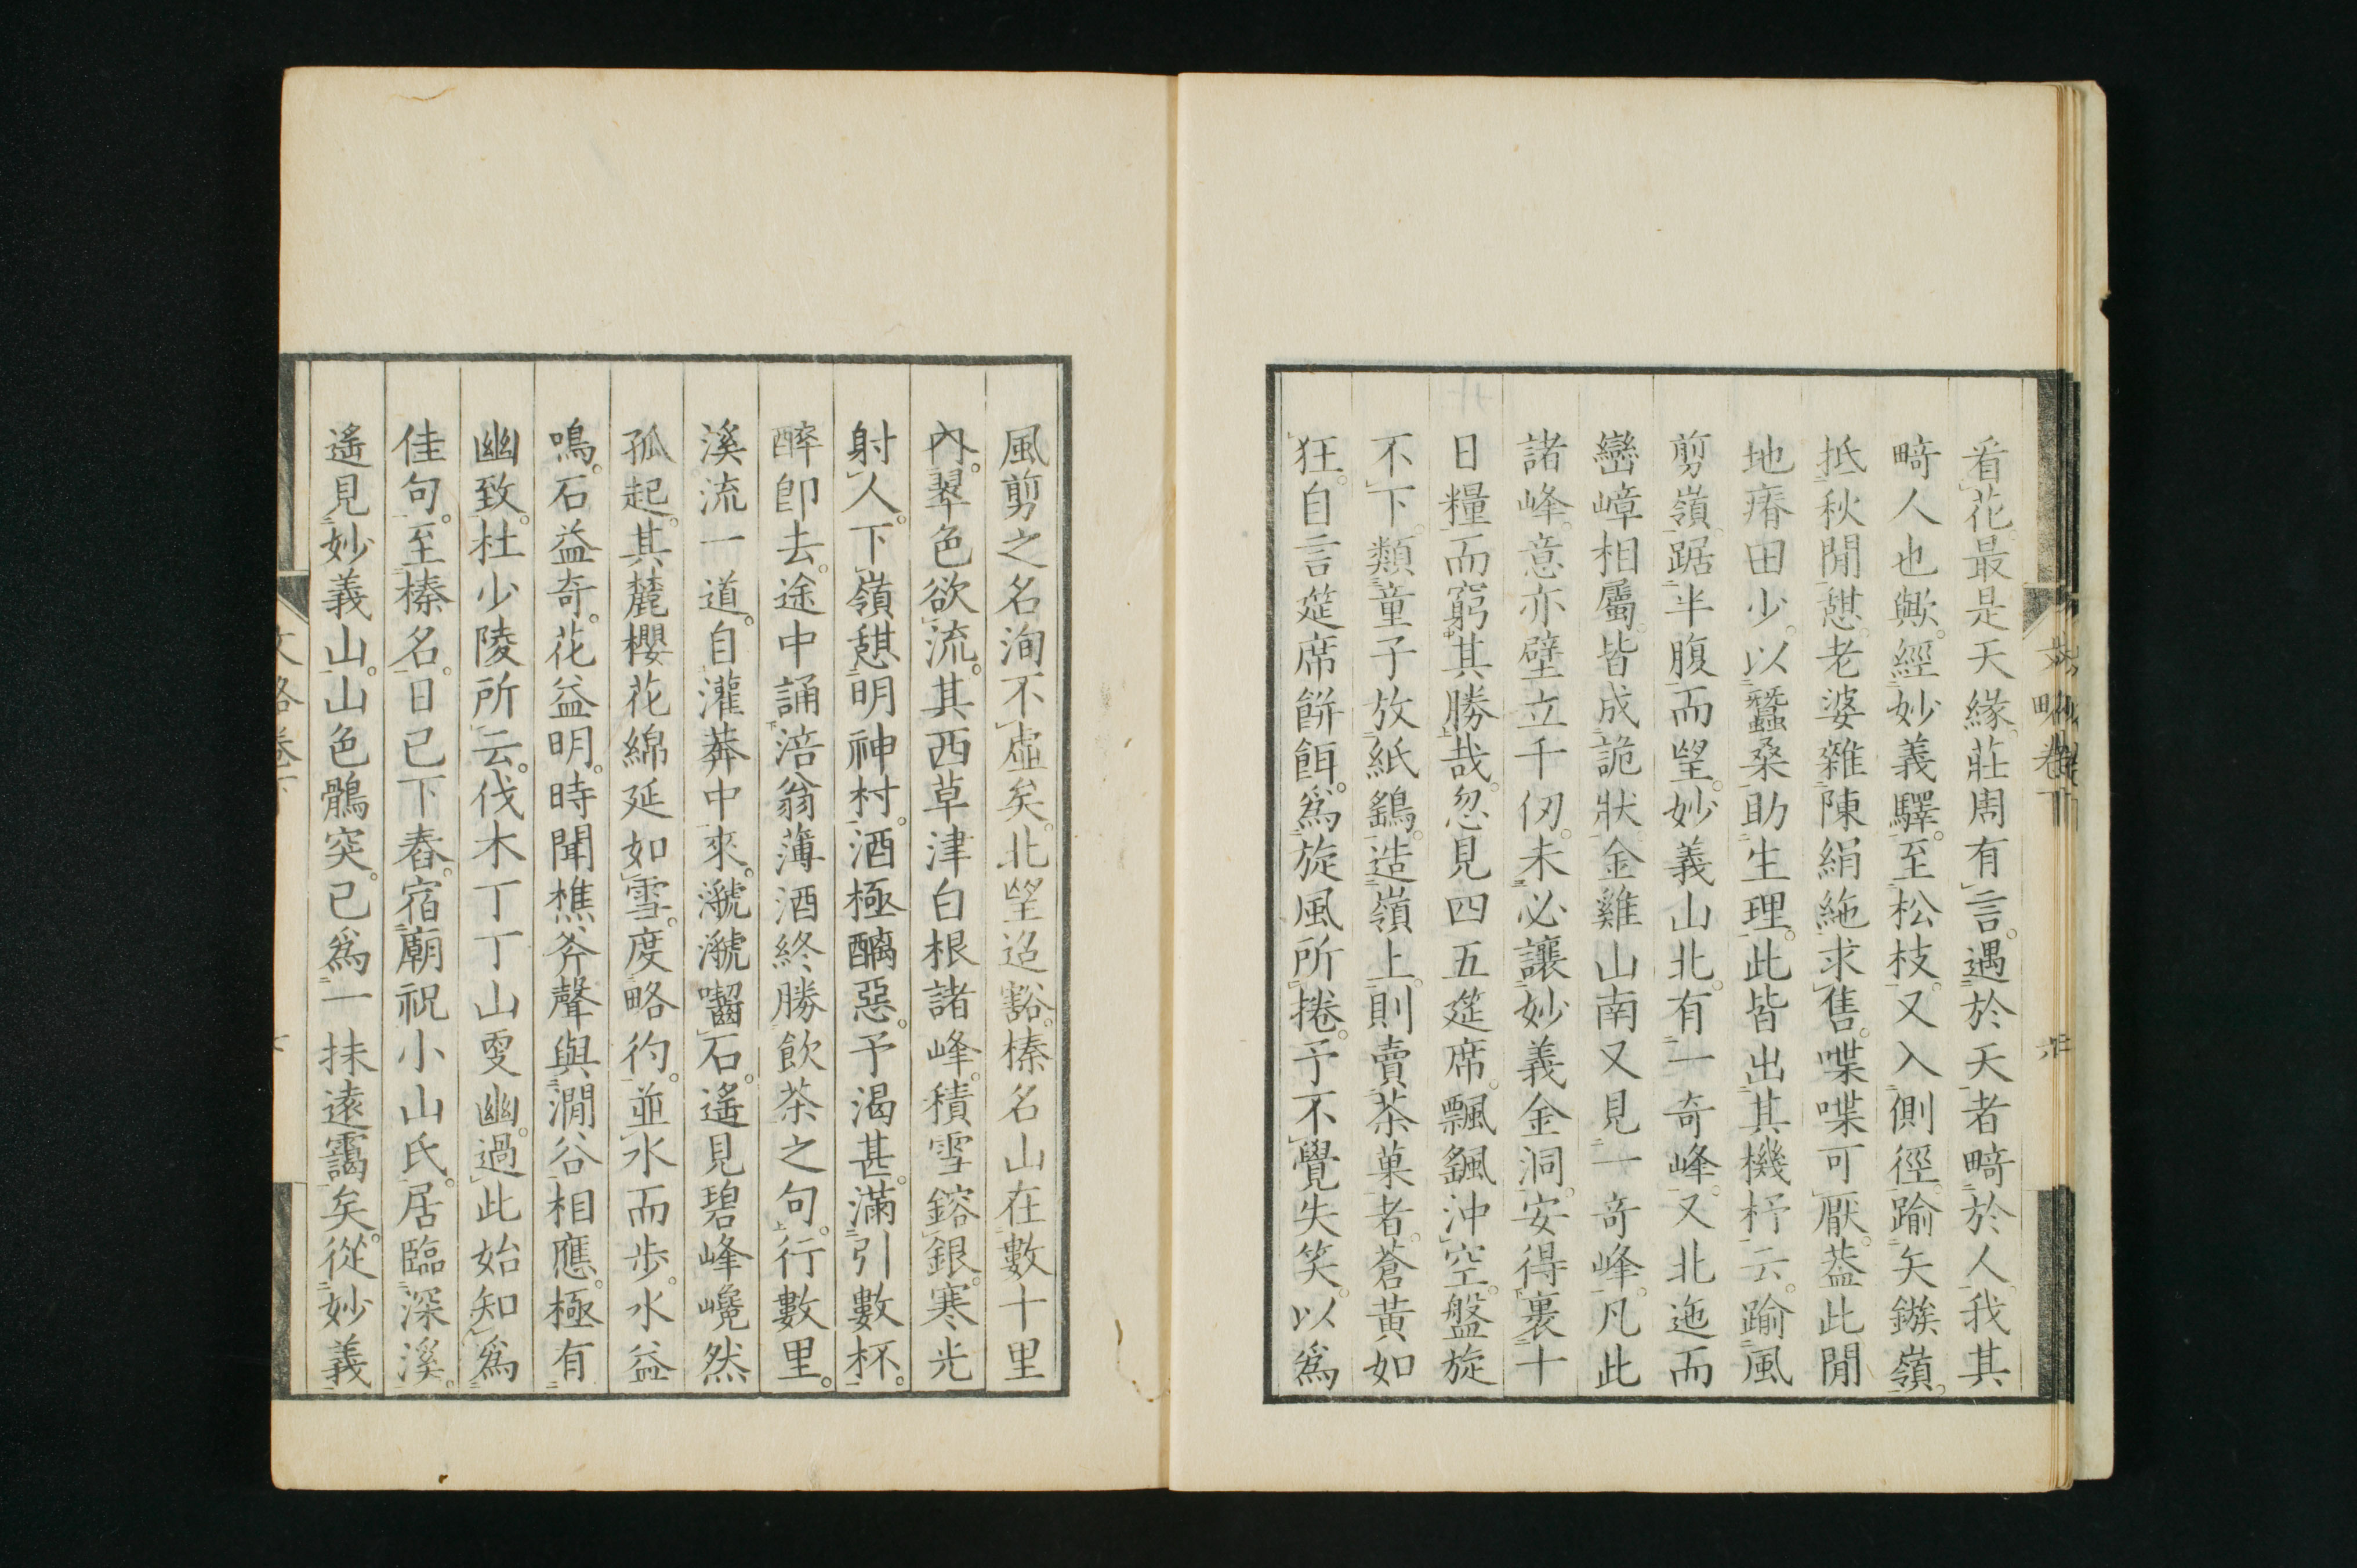 看花。最是天緣。莊周有言。遇於天者畸於人。我其
畸人也歟。經妙義驛。至松枝。又入側徑。踰矢鏃嶺。
抵秋閒憇。老婆雜陳絹絁求售。喋喋可厭。葢此閒
地瘠田少。以蠶桑助生理。此皆出其機杼云。踰風
剪嶺。踞半腹而望。妙義山北。有一奇峰。又北迤而
巒嶂相屬。皆成詭狀。金雞山南又見一奇峰。凡此
諸峰。意亦壁立千仭。未必讓妙義金洞。安得裹十
日糧。而窮其勝哉。忽見四五筵席。飄颻沖空。盤旋
不下。類童子放紙鷂。造嶺上。則賣茶菓者。蒼黃如
狂。自言筵席餅餌。爲旋風所捲。予不覺失笑。以爲
風剪之名洵不虛矣。北望迢豁。榛名山在數十里
內。翠色欲流。其西草津白根諸峰。積雪鎔銀。寒光
射人。下嶺憇明神村。酒極醨惡。予渴甚。滿引數杯。
醉卽去。途中誦涪翁薄酒終勝飲茶之句。行數里。
溪流一道。自灌莽中來。㶁㶁嚙石。遙見碧峰巉然
孤起。其麓櫻花綿延如雪。度略彴。並水而步。水益
鳴。石益奇。花益明。時聞樵斧聲與澗谷相應。極有
幽致。杜少陵所云。伐木丁丁山更幽。過此始知爲
佳句。至榛名。日已下舂。宿廟祝小山氏。居臨深溪。
遙見妙義山。山色鶻突。已爲一抹遠靄矣。從妙義
文略卷下